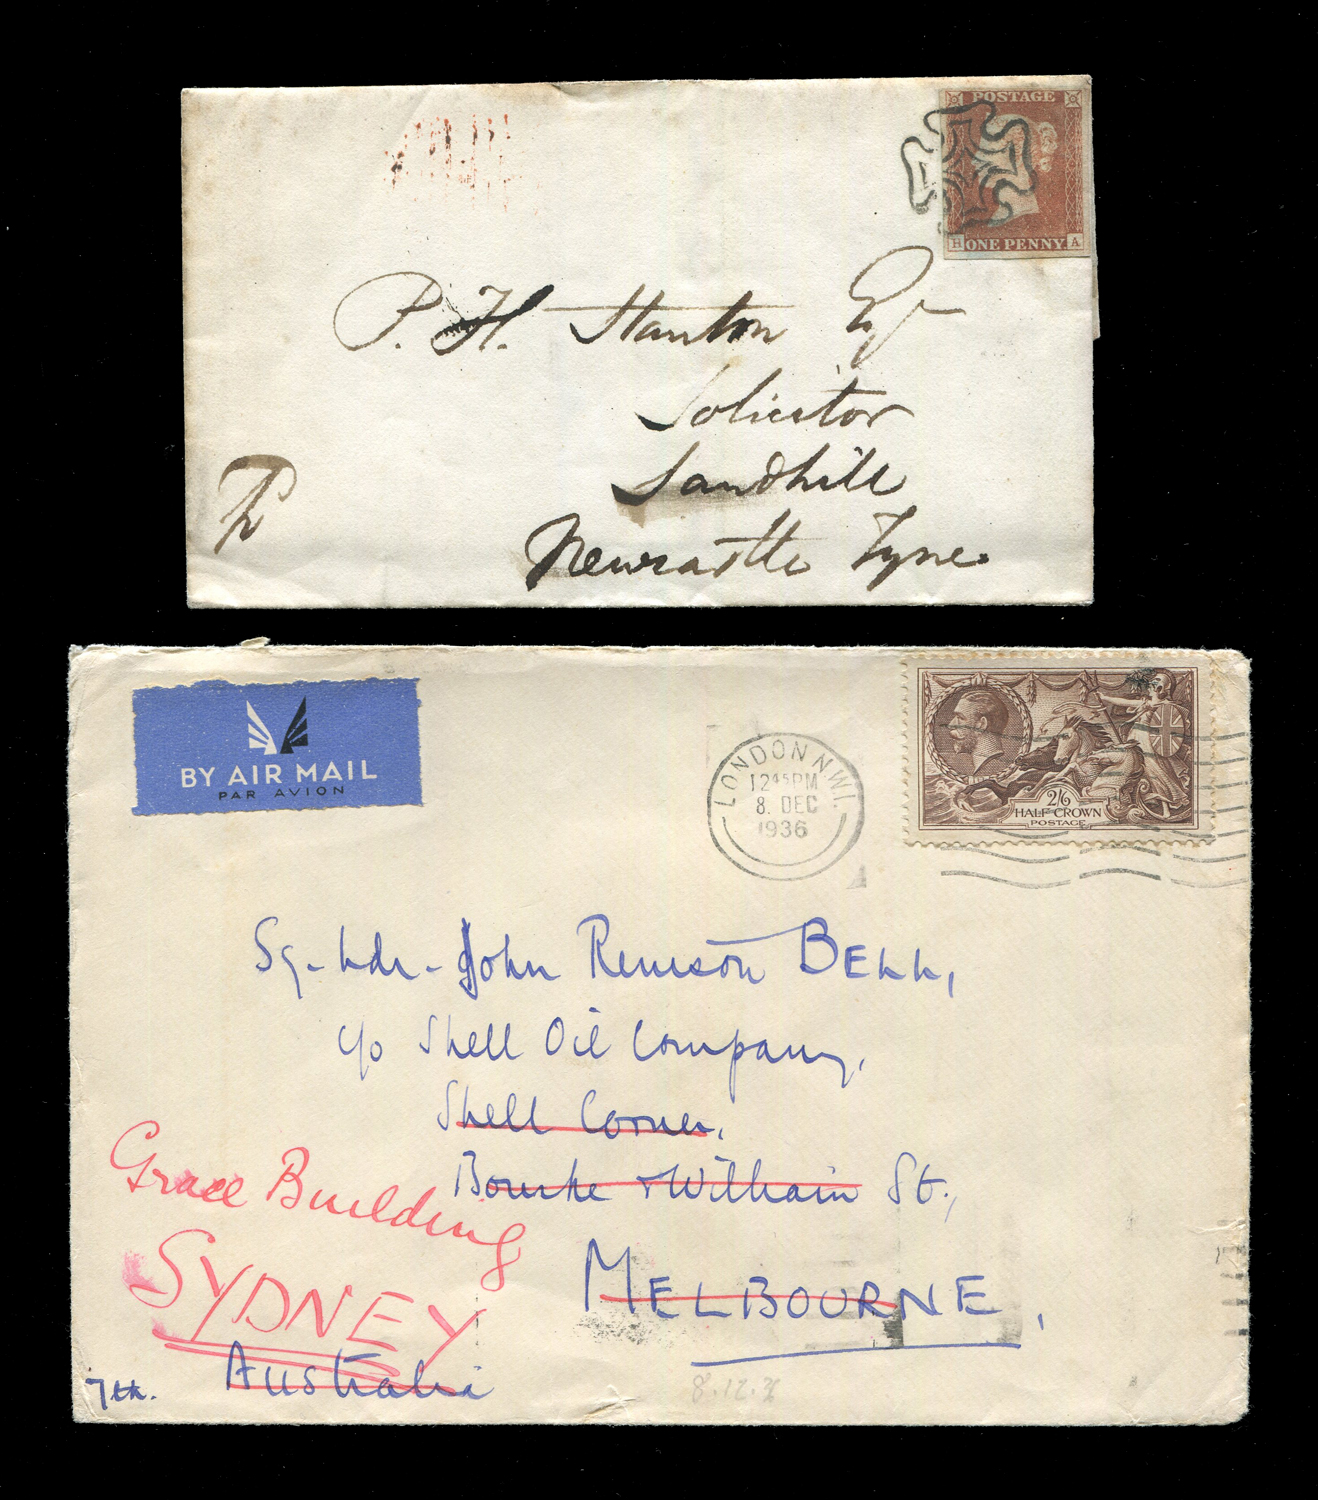 POSTAGE
H ONE PENNY A
P. H. Stanton Esqr
Solicitor
Sandhill
Newcastle Tyne
BY AIR MAIL
PAR AVION
LONDON N.W.1.
12 45 PM
8. DEC
1936
2/6
HALF CROWN
POSTAGE
Sq-Ldr-John Renison BELL,
c/o Shell Oil Company,
Shell Corner,
Bourke & William St.,
MELBOURNE,
Grace Building
SYDNEY
Australia
7th.